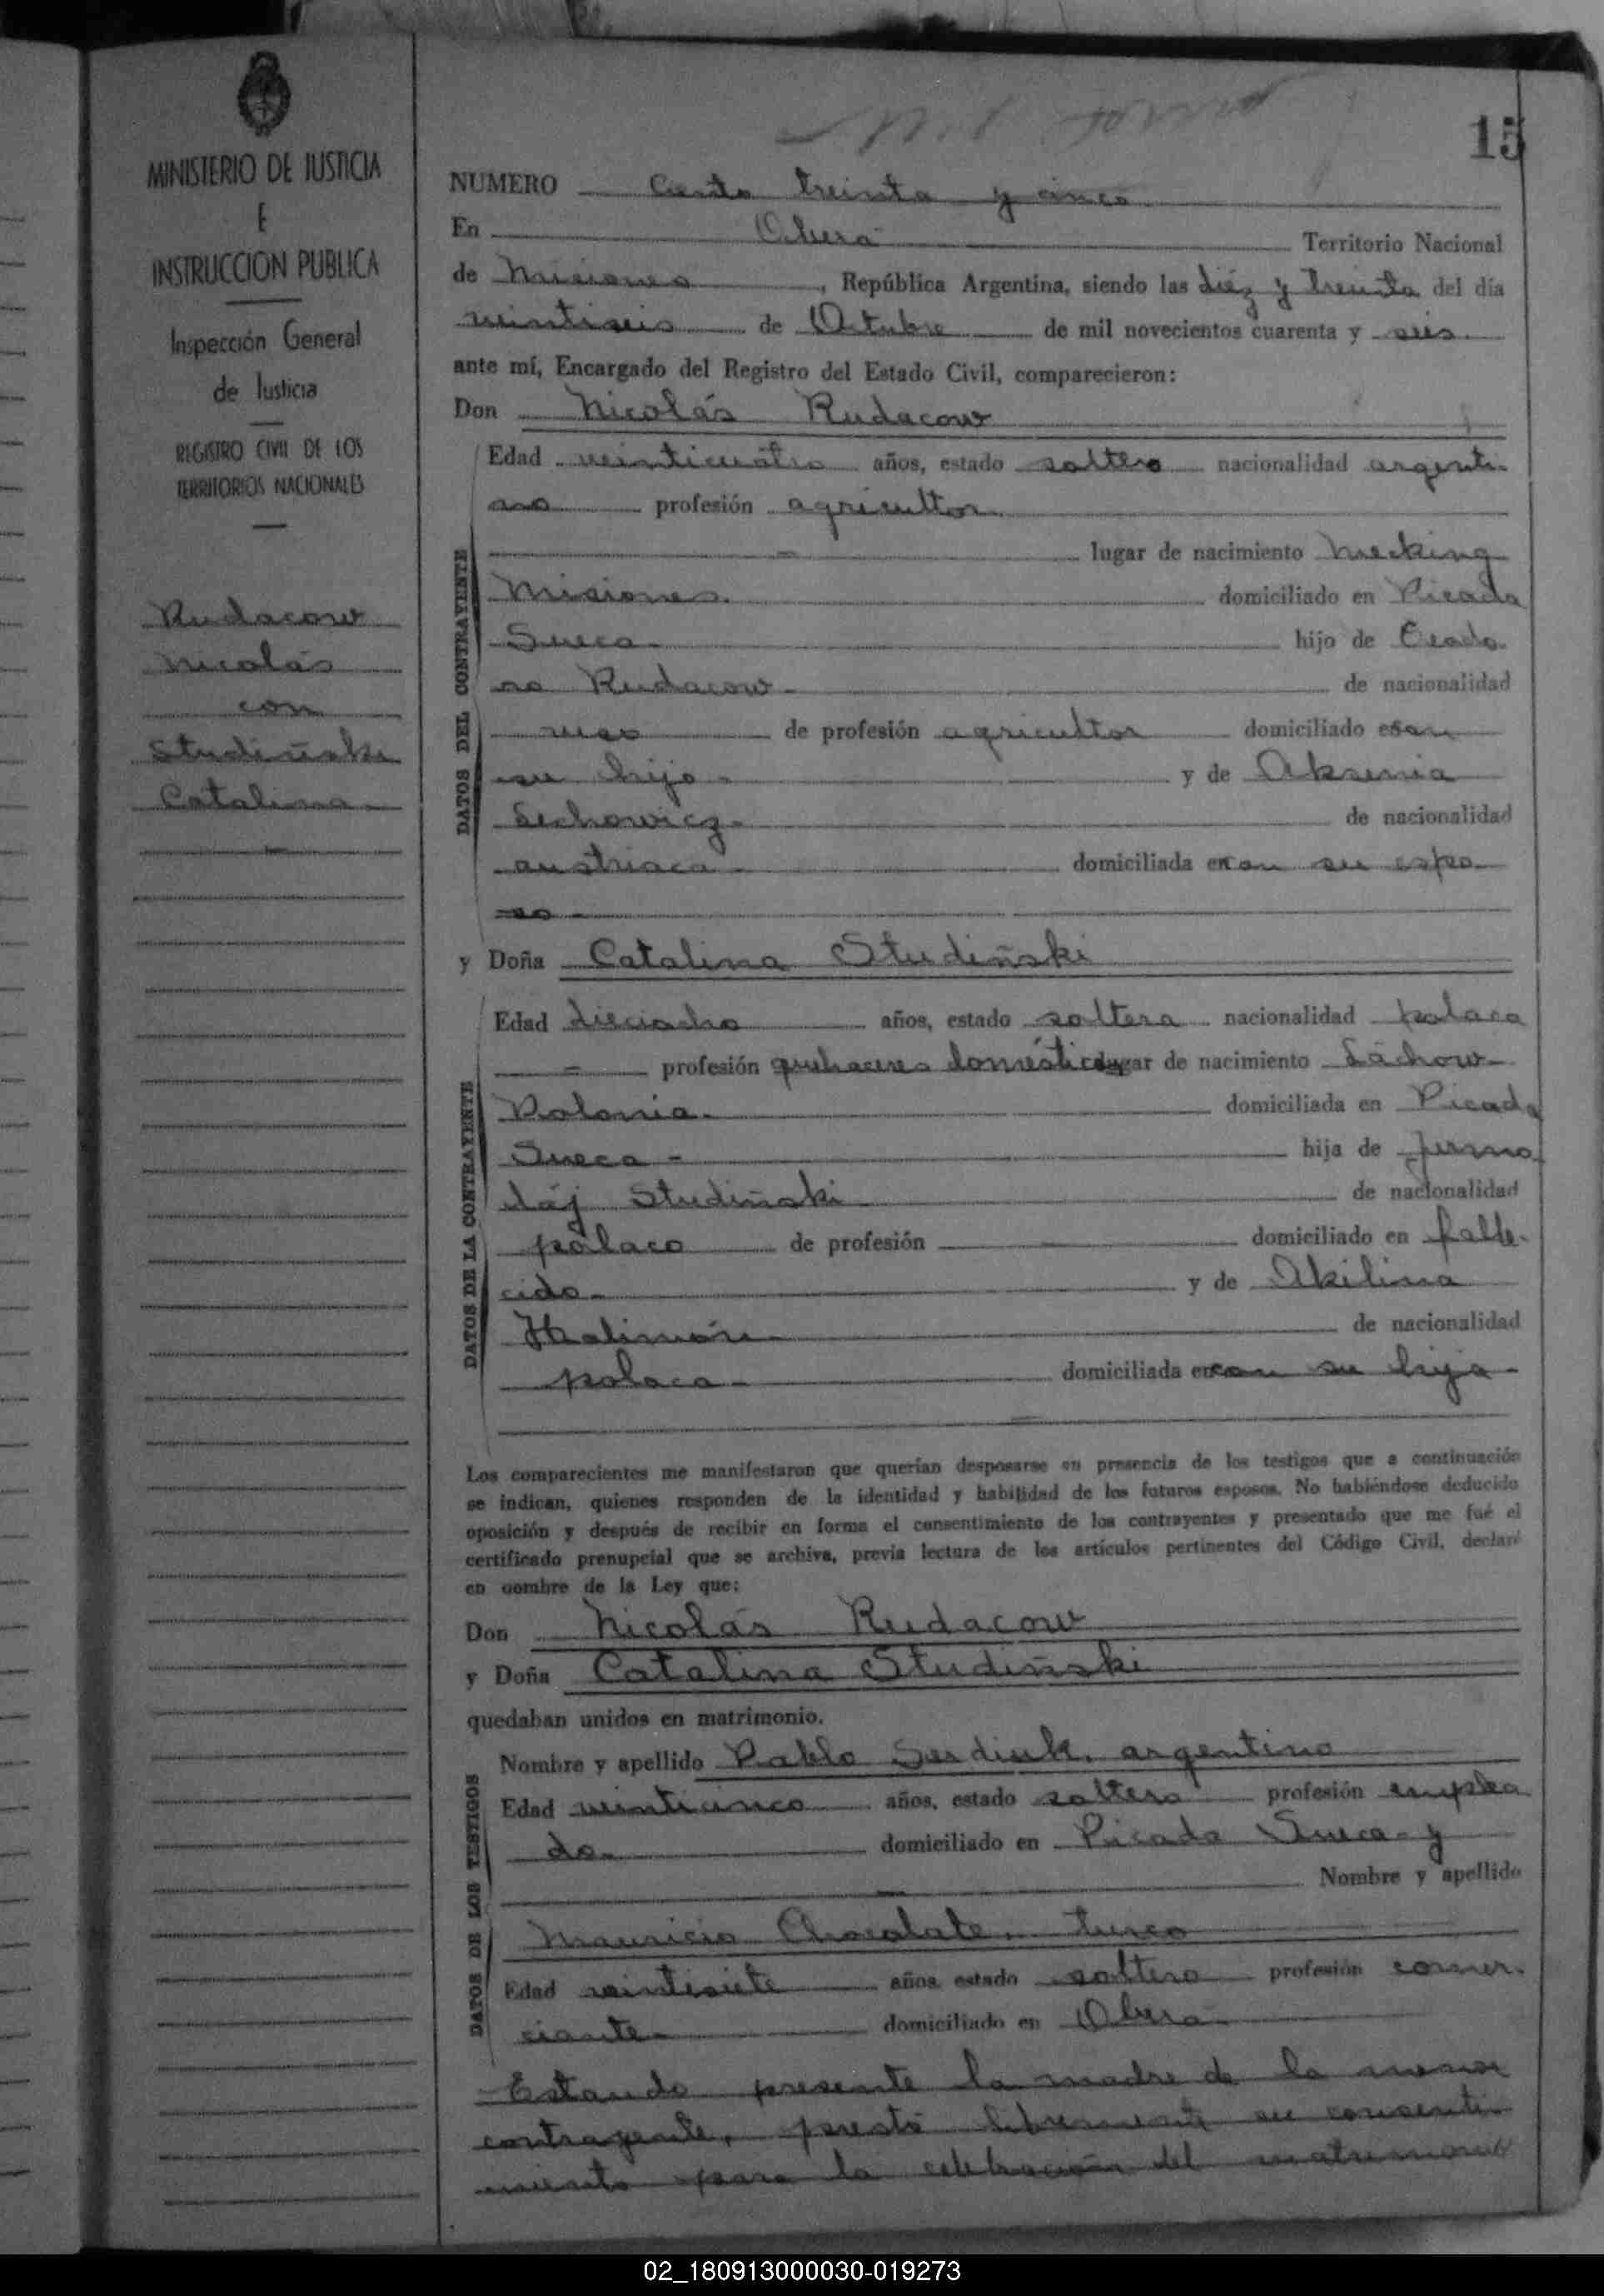 15
MINISTERIO DE JUSTICIA
E
INSTRUCCION PUBLICA
Inspección General
de Justicia
REGISTRO CIVIL DE LOS
TERRITORIOS NACIONALES
Rudacow
Nicolás
con
Studiñski
Catalina
NUMERO Ciento treinta y cinco
En Oberá Territorio Nacional
de Misiones, República Argentina, siendo las diéz y treinta del día
veintiseis de Octubre de mil novecientos cuarenta y seis
ante mí, Encargado del Registro del Estado Civil, comparecieron:
Don Nicolás Rudacow
DATOS DEL CONTRAYENTE
Edad veinticuatro años, estado soltero nacionalidad argenti-
no profesión agricultor
lugar de nacimiento Mecking
Misiones. domiciliado en Picada
Sueca- hijo de
Rudacow- de nacionalidad
ruso de profesión agricultor domiciliado con
su hijo- y de Aksenia
Lechowicz- de nacionalidad
austriaca- domiciliada en con su espo-
so-
y Doña Catalina Studiñski
DATOS DE LA CONTRAYENTE
Edad dieciocho años, estado soltera nacionalidad polaca
profesión quehaceres domésticos lugar de nacimiento Láchow-
Polonia. domiciliada en Picada
Sueca- hija de Jermo-
láj Studiñski de nacionalidad
polaco de profesión domiciliado en falle-
cido- y de Akilina
de nacionalidad
polaca- domiciliada en con su hija-
Los comparecientes me manifestaron que querían desposarse en presencia de los testigos que a continuación
se indican, quienes responden de la identidad y habilidad de los futuros esposos. No habiéndose deducido
oposición y después de recibir en forma el consentimiento de los contrayentes y presentado que me fué el
certificado prenupcial que se archiva, previa lectura de los artículos pertinentes del Código Civil, declaré
en nombre de la Ley que:
Don Nicolás Rudacow
y Doña Catalina Studiñski
quedaban unidos en matrimonio.
DATOS DE LOS TESTIGOS
Nombre y apellido Pablo Serdiuk, argentino
Edad veinticinco años, estado soltero profesión emplea
do- domiciliado en Picada Sueca- y
Nombre y apellido
Mauricio Chocolate, turco
Edad veintisiete años, estado soltero profesión comer-
ciante- domiciliado en Oberá-
Estando presente la madre de la menor
contrayente, prestó libremente su consenti-
miento para la celebración del matrimonio
02_180913000030-019273